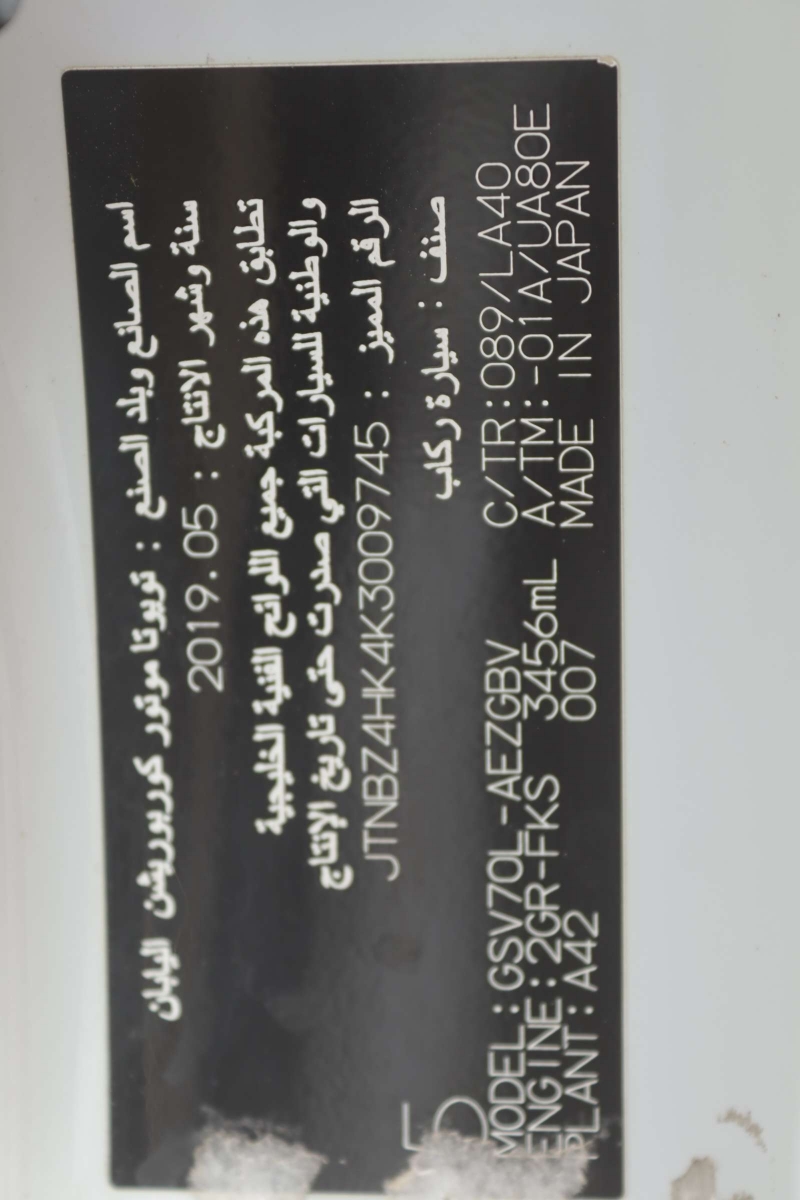 اسم الصانع وبلد الصنع : تويوتا موتور كوربوريشن اليابان
سنة وشهر الانتاج : 2019.05
تطابق هذه المركبة جميع اللوائح الفنية الخليجية
والوطنية للسيارات التي صدرت حتى تاريخ الإنتاج
الرقم المميز : JTNBZ4HK4K3009745
صنف : سيارة ركاب
5
MODEL:GSV70L-AEZGBV C/TR:089/LA40
ENGINE:2GR-FKS 3456mL A/TM:-01A/UA80E
PLANT:A42 007 MADE IN JAPAN